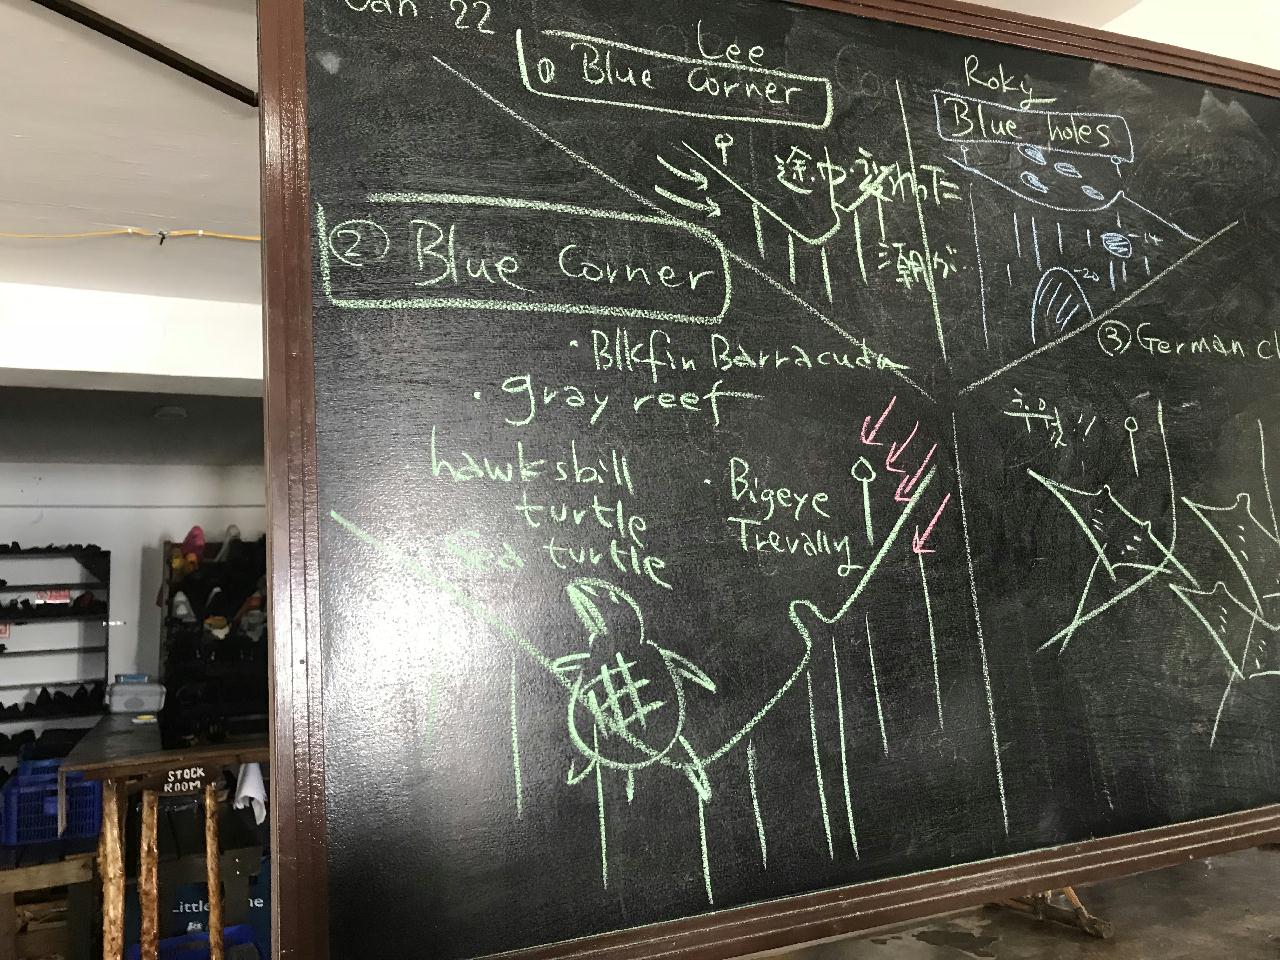 Jan. 22
Lee
① Blue Corner
途中変わった
潮が
Roky
Blue holes
-14
-20
② Blue Corner
• Blkfin Barracuda
• gray reef
hawksbill
turtle
Sea turtle
• Bigeye
Trevally
③ German c
STOCK
ROOM